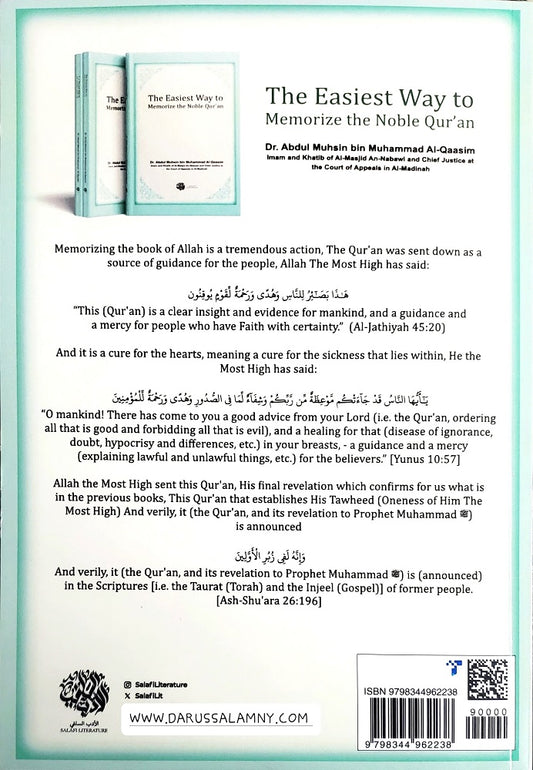 The Easiest Way to
Memorize the Noble Qur'an
Dr. Abdul Muhsin bin Muhammad Al-Qaasim
The Easiest Way to
Memorize the Noble Qur'an
Dr. Abdul Muhsin bin Muhammad Al-Qaasim
Imam and Khatib of Al-Masjid An-Nabawi and Chief Justice at
the Court of Appeals in Al-Madinah
Memorizing the book of Allah is a tremendous action, The Qur'an was sent down as a
source of guidance for the people, Allah The Most High has said:
هَـٰذَا بَصَـٰٓئِرُ لِلنَّاسِ وَهُدًى وَرَحْمَةٌ لِّقَوْمٍ يُوقِنُونَ
“This (Qur'an) is a clear insight and evidence for mankind, and a guidance and
a mercy for people who have Faith with certainty.” (Al-Jathiyah 45:20)
And it is a cure for the hearts, meaning a cure for the sickness that lies within, He the
Most High has said:
يَـٰٓأَيُّهَا النَّاسُ قَدْ جَآءَتْكُم مَّوْعِظَةٌ مِّن رَّبِّكُمْ وَشِفَآءٌ لِّمَا فِى الصُّدُورِ وَهُدًى وَرَحْمَةٌ لِّلْمُؤْمِنِينَ
“O mankind! There has come to you a good advice from your Lord (i.e. the Qur'an, ordering
all that is good and forbidding all that is evil), and a healing for that (disease of ignorance,
doubt, hypocrisy and differences, etc.) in your breasts, - a guidance and a mercy
(explaining lawful and unlawful things, etc.) for the believers.” [Yunus 10:57]
Allah the Most High sent this Qur'an, His final revelation which confirms for us what is
in the previous books, This Qur'an that establishes His Tawheed (Oneness of Him The
Most High) And verily, it (the Qur'an, and its revelation to Prophet Muhammad ﷺ)
is announced
وَإِنَّهُ لَفِى زُبُرِ الْأَوَّلِينَ
And verily, it (the Qur'an, and its revelation to Prophet Muhammad ﷺ) is (announced)
in the Scriptures [i.e. the Taurat (Torah) and the Injeel (Gospel)] of former people.
[Ash-Shu'ara 26:196]
الأدب السلفي
SALAFI LITERATURE
SalafiLiterature
SalafiLit
WWW.DARUSSALAMNY.COM
ISBN 9798344962238
90000
9 798344 962238